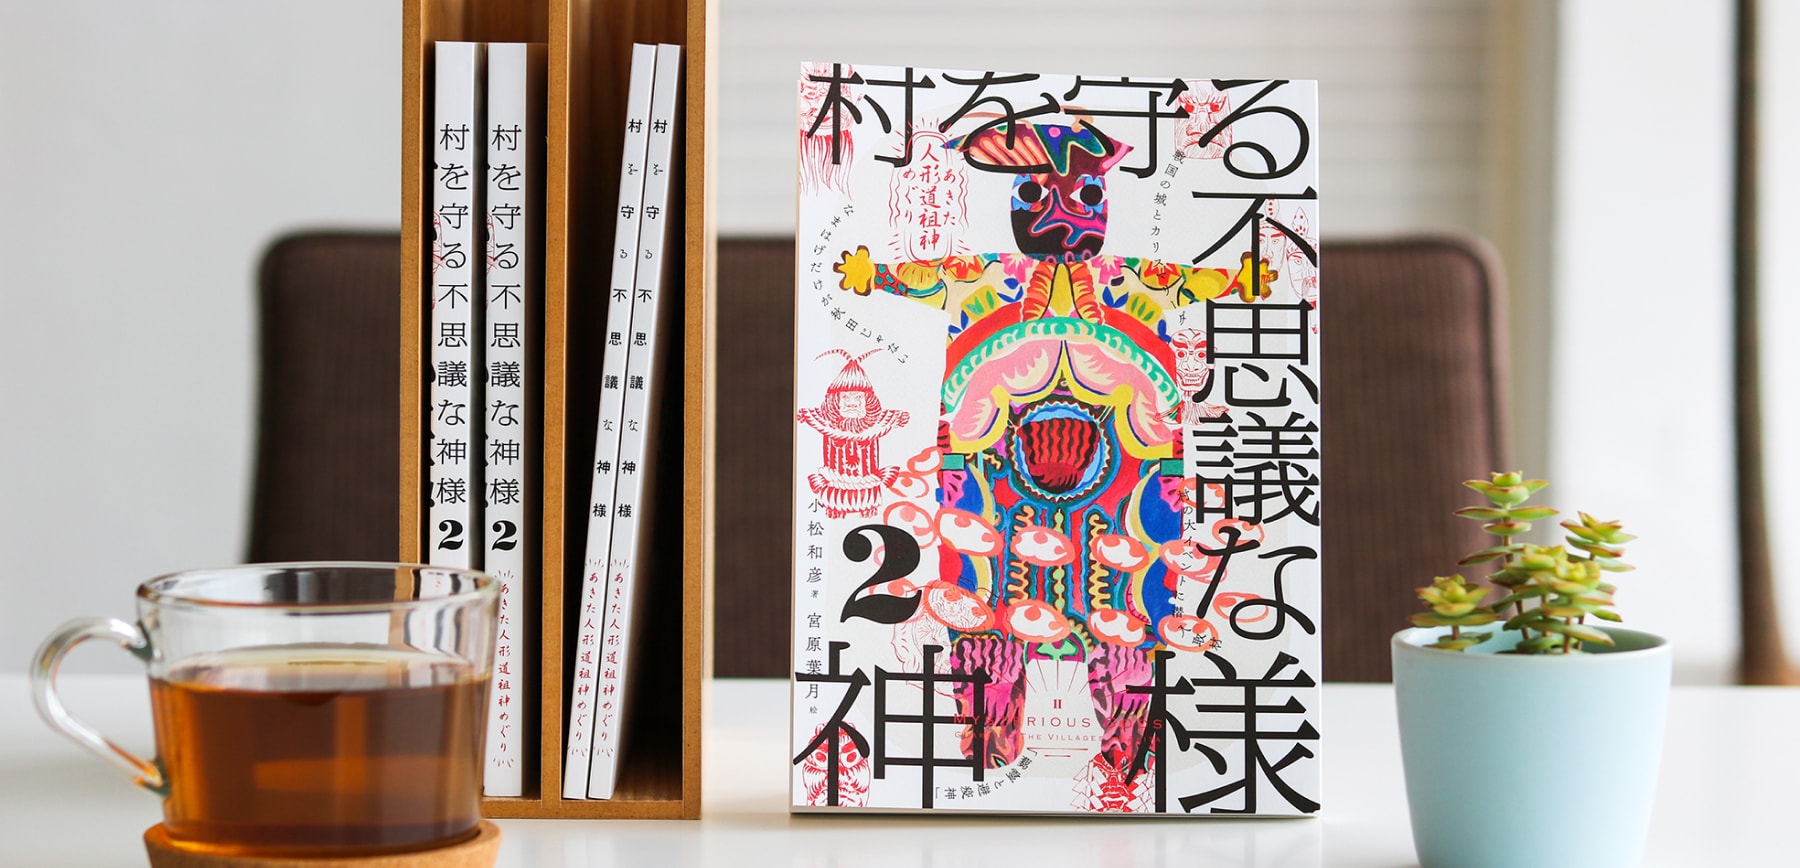 村を守る不思議な神様2
村を守る不思議な神様2
あきた人形道祖神めぐり
村を守る不思議な神様
あきた人形道祖神めぐり
村を守る不思議な神様
あきた人形道祖神めぐり
村を守る
不思議な
神様
2
あきた
人形道祖神
めぐり
なまはげだけが秋田じゃない
戦国の城とカリスマ
村の大イベントに潜入取材
小松和彦 著
宮原葉月 絵
II
MYSTERIOUS
THE VILLAGES
「鹿嶋と避疫神」